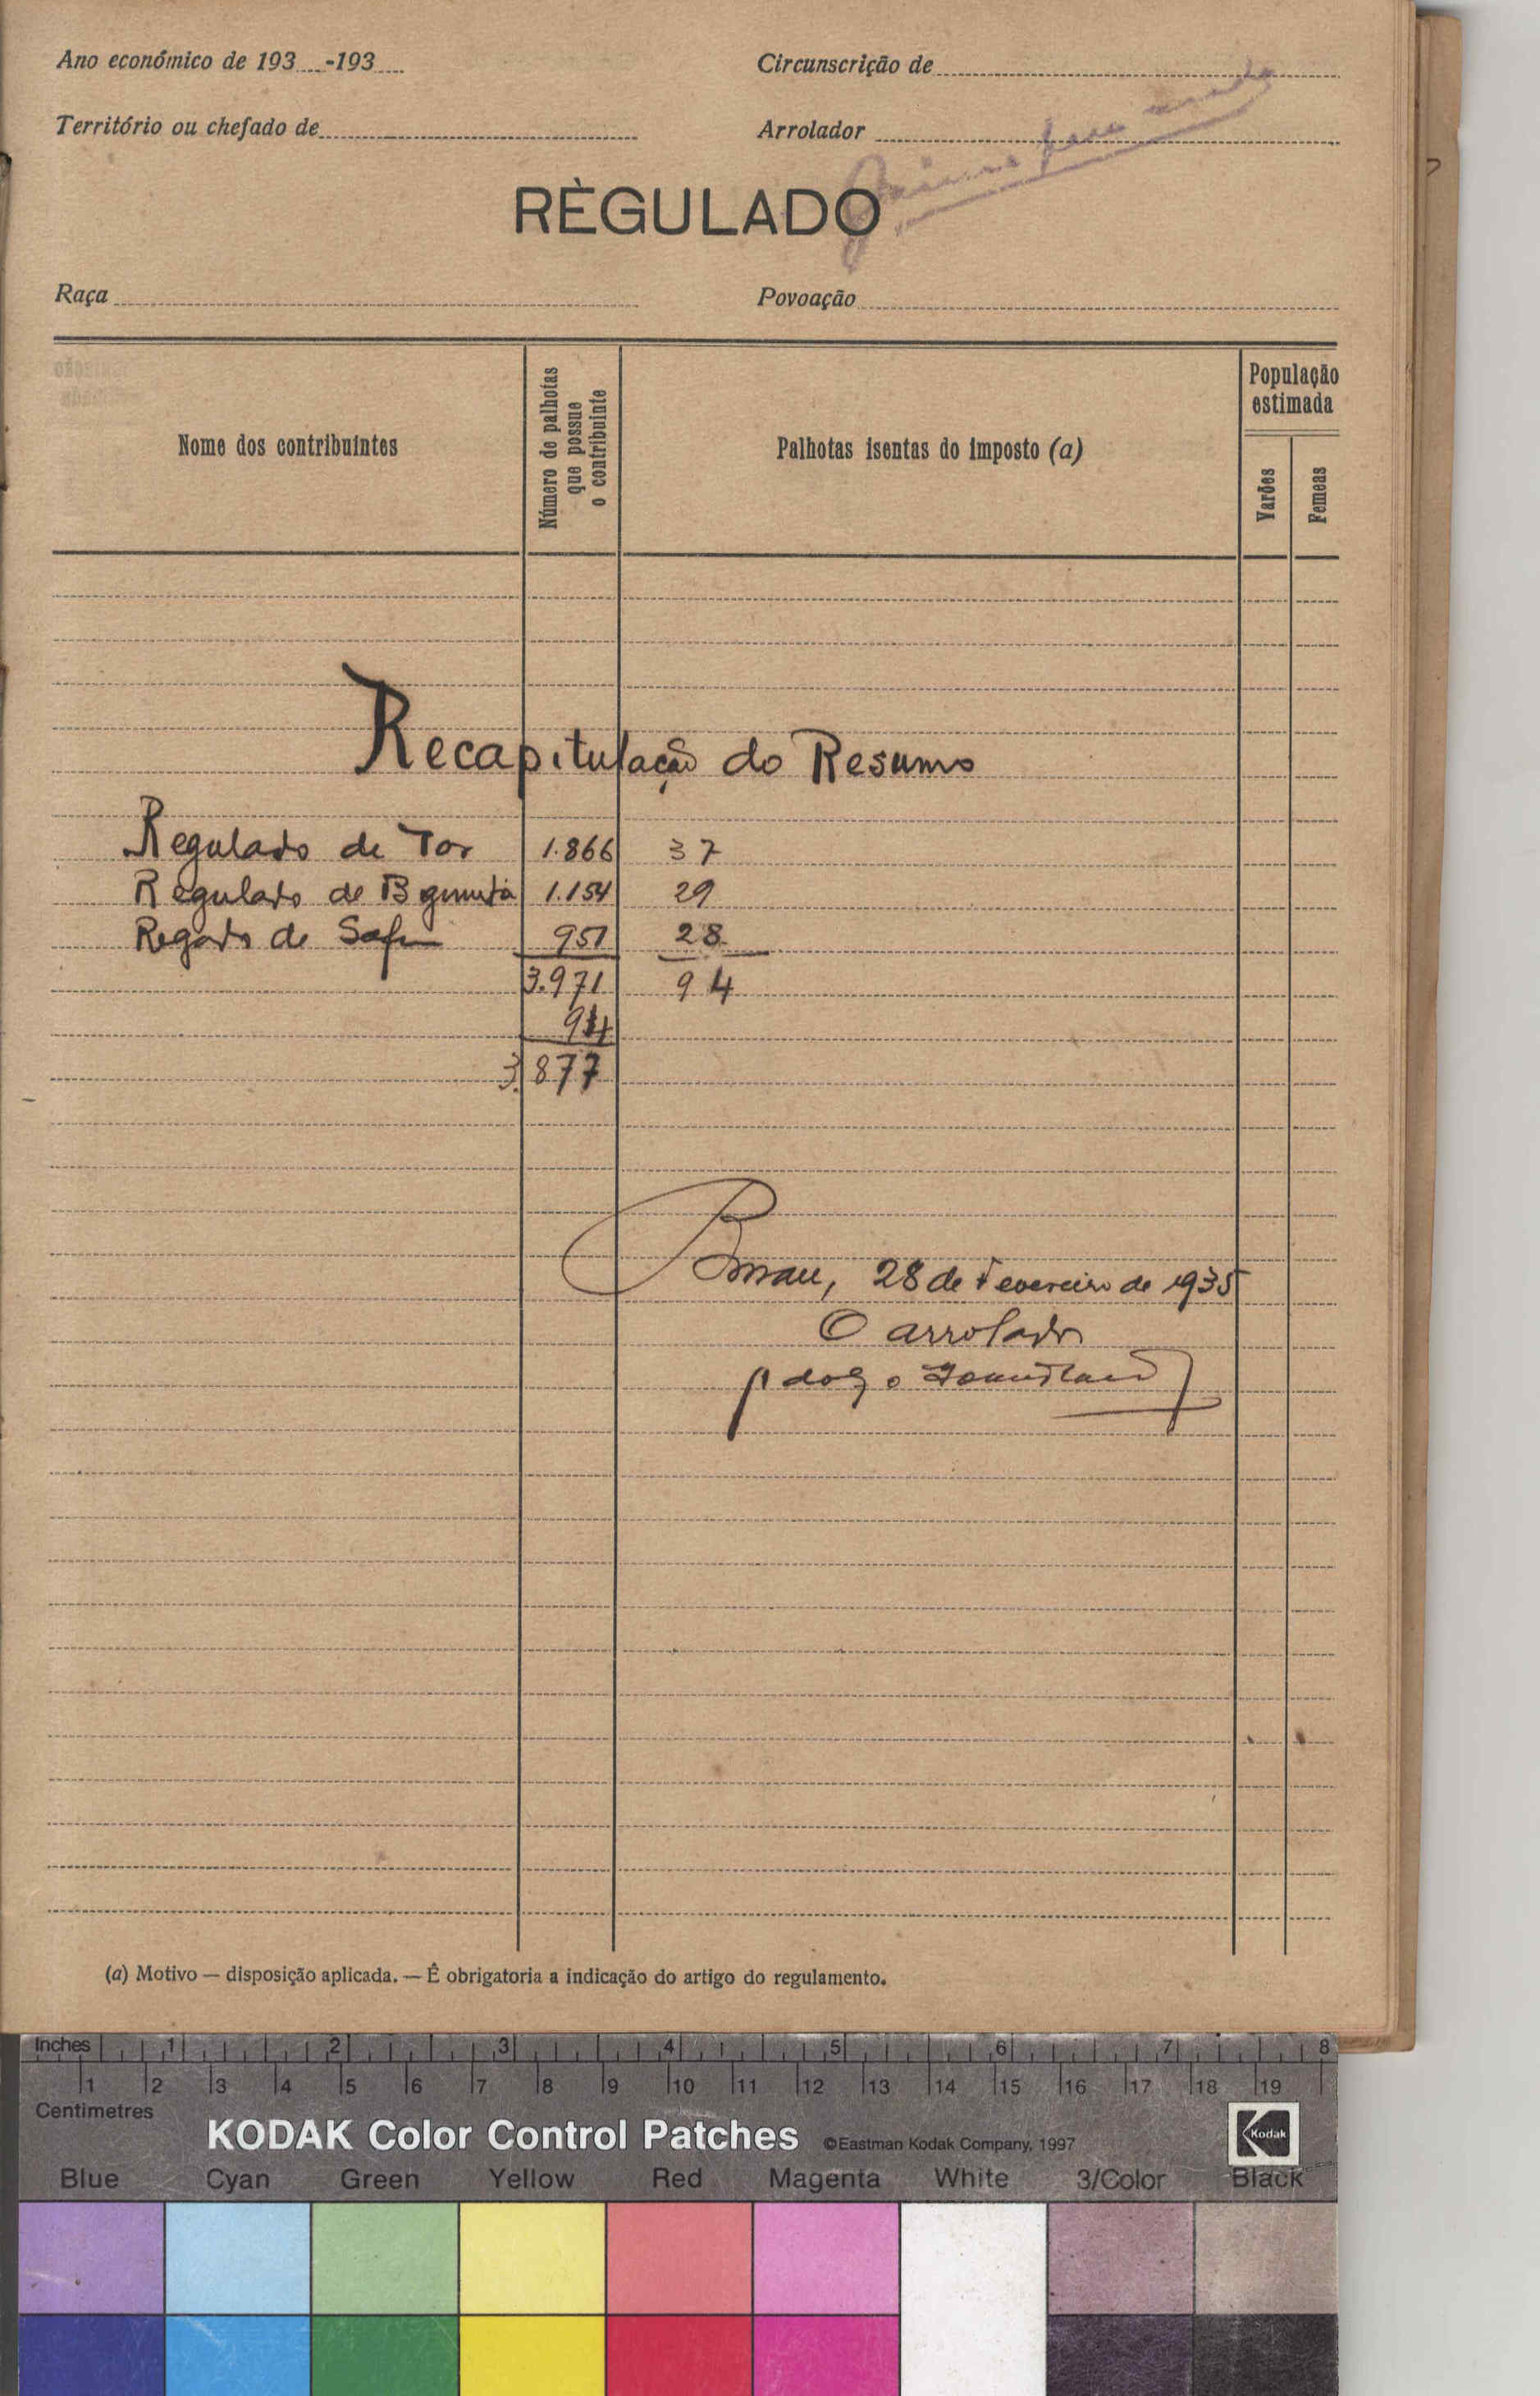 Ano económico de 193 -193
Circunscrição de
Território ou chefado de
Arrolador
RÈGULADO
Raça
Povoação
Nome dos contribuintes
Número de palhotas que possue o contribuinte
Palhotas isentas do imposto (a)
População estimada
Varões
Femeas
Recapitulação do Resumo
Regulado de Tor 1.866 37
Regulado de 1.154 29
de Safim 951 28
3.971 94
94
3.877
28 de Fevereiro de 1935
O arrolador
(a) Motivo — disposição aplicada. — É obrigatoria a indicação do artigo do regulamento.
Inches 1 2 3 4 5 6 7 8
1 2 3 4 5 6 7 8 9 10 11 12 13 14 15 16 17 18 19
Centimetres
KODAK Color Control Patches ©Eastman Kodak Company, 1997 Kodak
Blue Cyan Green Yellow Red Magenta White 3/Color Black